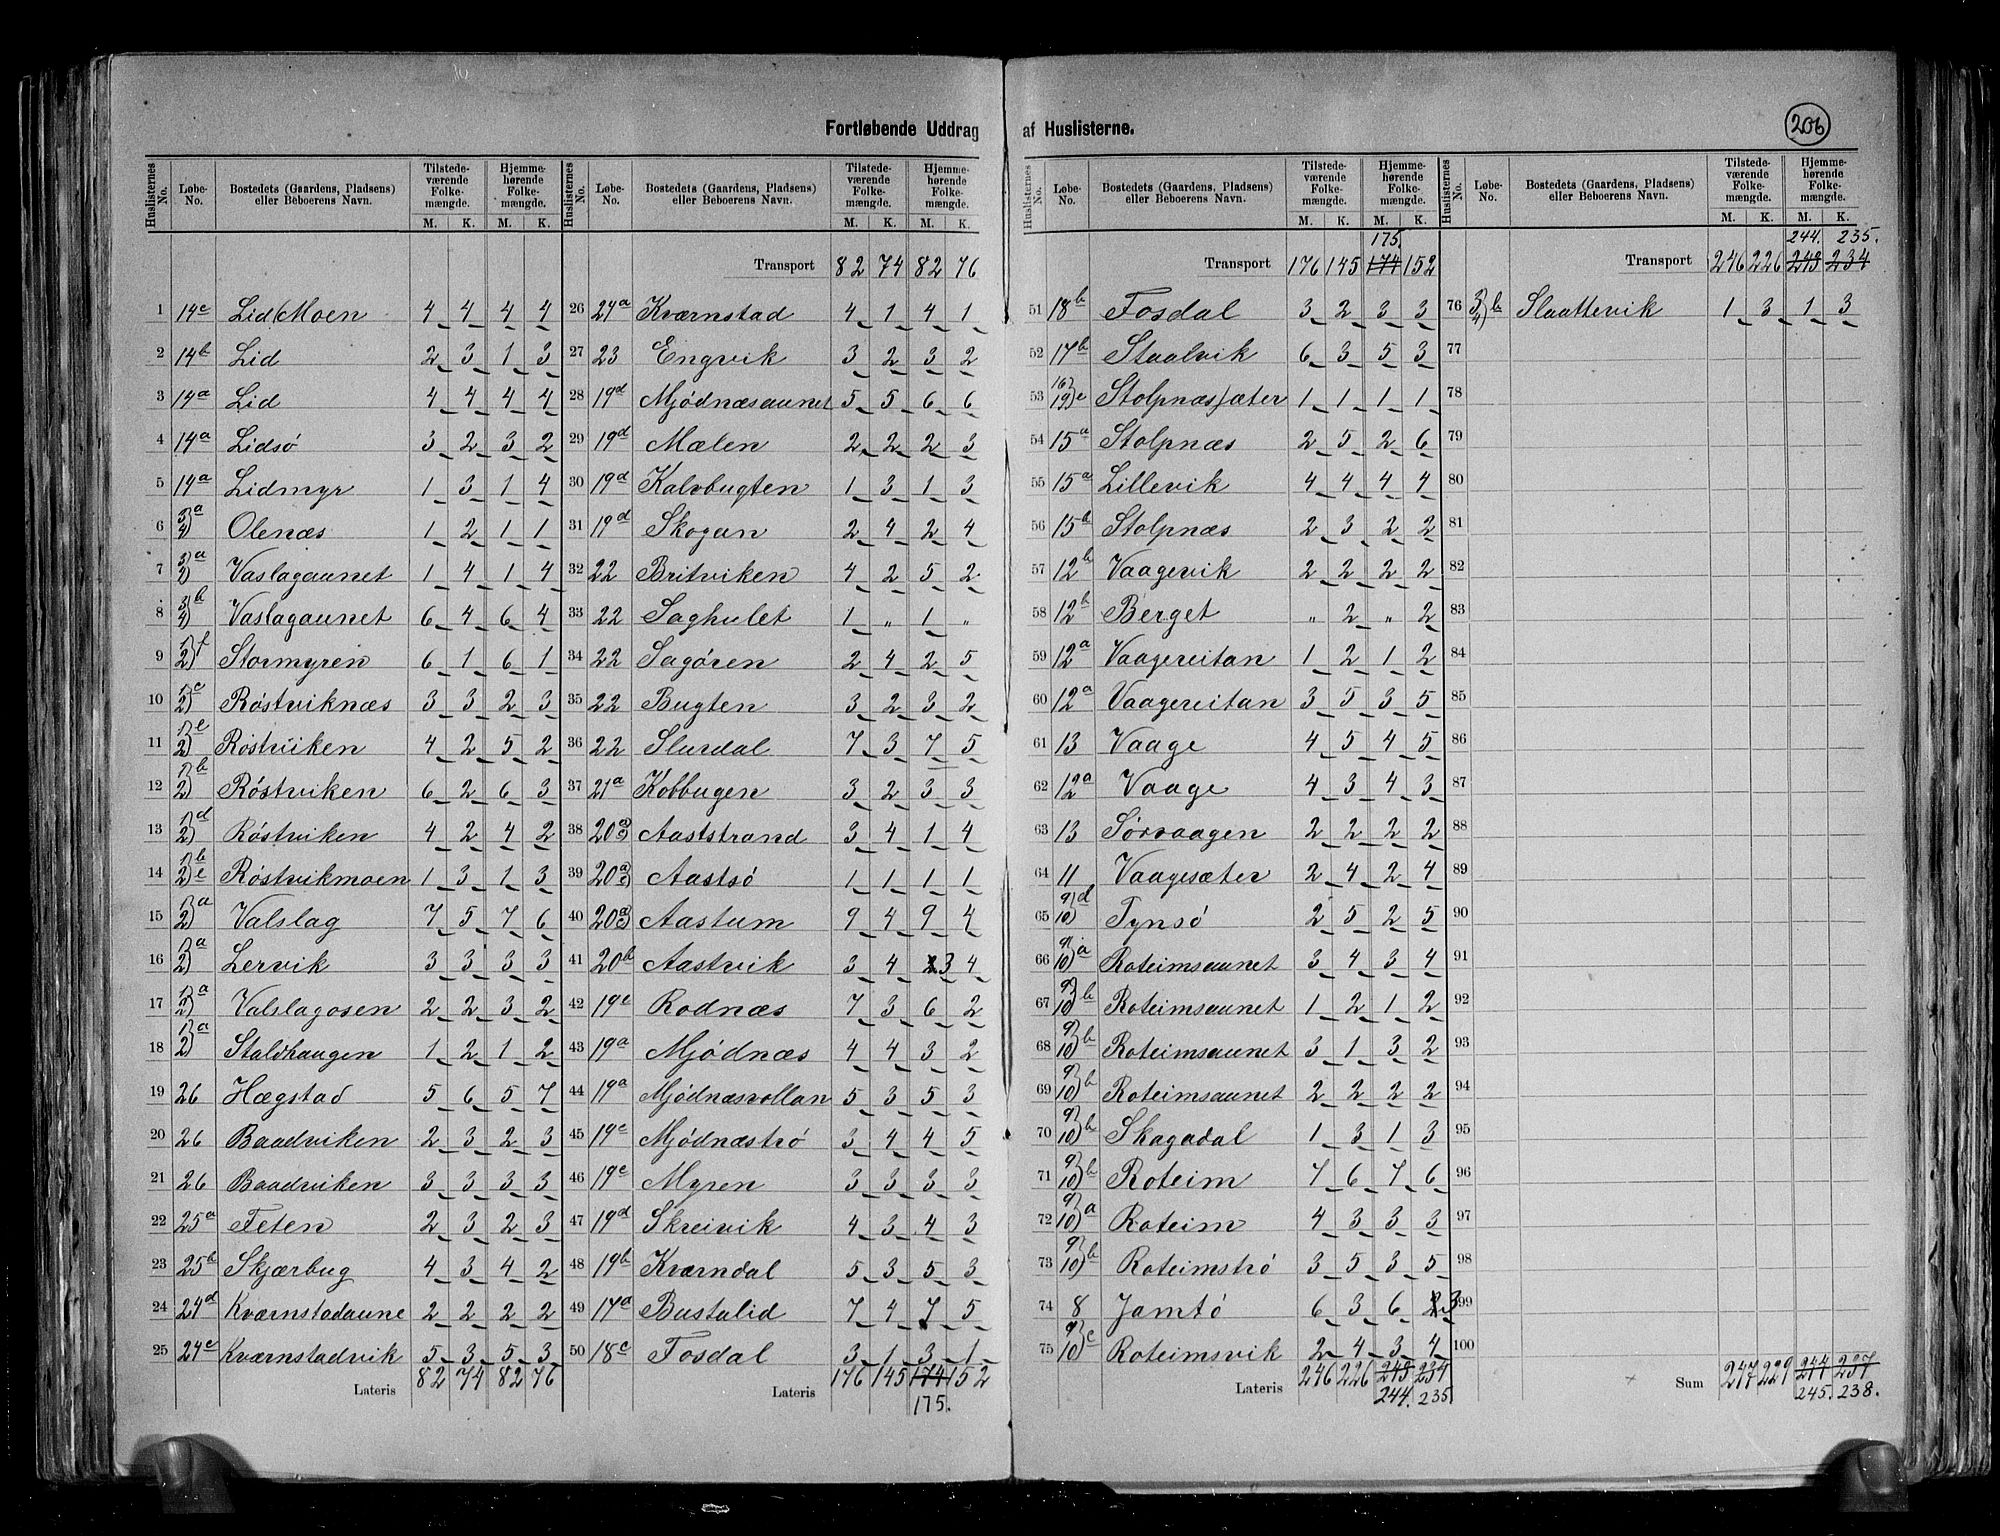 Fortløbende Uddrag af Huslisterne.
206
Huslisternes No. Løbe-No. Bostedets (Gaardens, Pladsens) eller Beboerens Navn. Tilstedeværende Folkemængde. M. K. Hjemmehørende Folkemængde. M. K.
1 14c Lid (Moen 4 4 4 4
2 14b Lid 2 3 1 3
3 14a Lid 4 4 4 4
4 14a Lidsø 3 2 3 2
5 14a Lidmyr 1 3 1 4
6 3/4) a Olenæs 1 2 1 1
7 3/4) a Vaslagaunet 1 4 1 4
8 3/4) b Vaslagaunet 6 4 6 4
9 1/2) f Stormyren 6 1 6 1
10 1/2) c Røstviknæs 3 3 2 3
11 1/2) e Røstviken 4 2 5 2
12 1/2) b Røstviken 6 2 6 3
13 1/2) d Røstviken 4 2 4 2
14 1/2) b e Røstvikmoen 1 3 1 3
15 1/2) a Valslag 7 5 7 6
16 1/2) a Lervik 3 3 3 3
17 1/2) a Valslagosen 2 2 3 2
18 1/2) a Staldhaugen 1 2 1 2
19 26 Hægstad 5 6 5 7
20 26 Baadviken 2 3 2 3
21 26 Baadviken 3 3 3 3
22 25a Feten 2 3 2 3
23 25b Skjærbug 4 3 4 2
24 24d Kværnstadaune 2 2 2 2
25 24c Kværnstadvik 5 3 5 3
Lateris 82 74 82 76
Huslisternes No. Løbe-No. Bostedets (Gaardens, Pladsens) eller Beboerens Navn. Tilstedeværende Folkemængde. M. K. Hjemmehørende Folkemængde. M. K.
Transport 82 74 82 76
26 24a Kværnstad 4 1 4 1
27 23 Engvik 3 2 3 2
28 19d Mjødnæsaunet 5 5 6 6
29 19d Mælen 2 2 2 3
30 19d Kalvbugten 1 3 1 3
31 19d Skogan 2 4 2 4
32 22 Britviken 4 2 5 2
33 22 Saghulet 1 " 1 "
34 22 Sagøren 2 4 2 5
35 22 Bugten 3 2 3 2
36 22 Slurdal 7 3 7 5
37 21a Kobbugen 3 2 3 3
38 20a Aaststrand 3 4 1 4
39 20a Aastsø 1 1 1 1
40 20a Aastum 9 4 9 4
41 20b Aastvik 3 4 2 3 4
42 19e Rodnæs 7 3 6 2
43 19a Mjødnæs 4 4 3 2
44 19a Mjødnæsvollan 5 3 5 3
45 19c Mjødnæstrø 3 4 4 5
46 19c Myren 3 3 3 3
47 19d Skreivik 4 3 4 3
48 19b Kværndal 5 3 5 3
49 17a Bustalid 7 4 7 5
50 18c Fosdal 3 1 3 1
Lateris 176 145 174 152
175.
Huslisternes No. Løbe-No. Bostedets (Gaardens, Pladsens) eller Beboerens Navn. Tilstedeværende Folkemængde. M. K. Hjemmehørende Folkemængde. M. K.
175.
Transport 176 145 174 152
51 18b Fosdal 3 2 3 3
52 17b Staalvik 6 3 5 3
53 16/19) e Stolpnæssæter 1 1 1 1
54 15a Stolpnæs 2 5 2 6
55 15a Lillevik 4 4 4 4
56 15b Stolpnæs 2 3 2 2
57 12b Vaagevik 2 2 2 2
58 12b Berget " 2 " 2
59 12a Vaagereitan 1 2 1 2
60 12a Vaagereitan 3 5 3 5
61 13 Vaage 4 5 4 5
62 12a Vaage 4 3 4 3
63 13 Sørvaagen 2 2 2 2
64 11 Vaagesæter 2 4 2 4
65 9/10) d Tynsø 2 5 2 5
66 9/10) a Roteimsaunet 3 4 3 4
67 9/10) b Roteimsaunet 1 2 1 2
68 9/10) b Roteimsaunet 3 1 3 2
69 9/10) b Roteimsaunet 2 2 2 2
70 9/10) b Skagadal 1 3 1 3
71 9/10) b Roteim 7 6 7 6
72 9/10) a Roteim 4 3 3 3
73 9/10) b Roteimstrø 3 5 3 5
74 8 Jamtø 6 3 6 2 3
75 9/10) c Roteimsvik 2 4 3 4
Lateris 246 226 243 234
244. 235.
Huslisternes No. Løbe-No. Bostedets (Gaardens, Pladsens) eller Beboerens Navn. Tilstedeværende Folkemængde. M. K. Hjemmehørende Folkemængde. M. K.
244. 235.
Transport 246 226 243 234
76 3/4) b Slaattevik 1 3 1 3
77
78
79
80
81
82
83
84
85
86
87
88
89
90
91
92
93
94
95
96
97
98
99
100
Sum 247 229 244 237
245. 238.